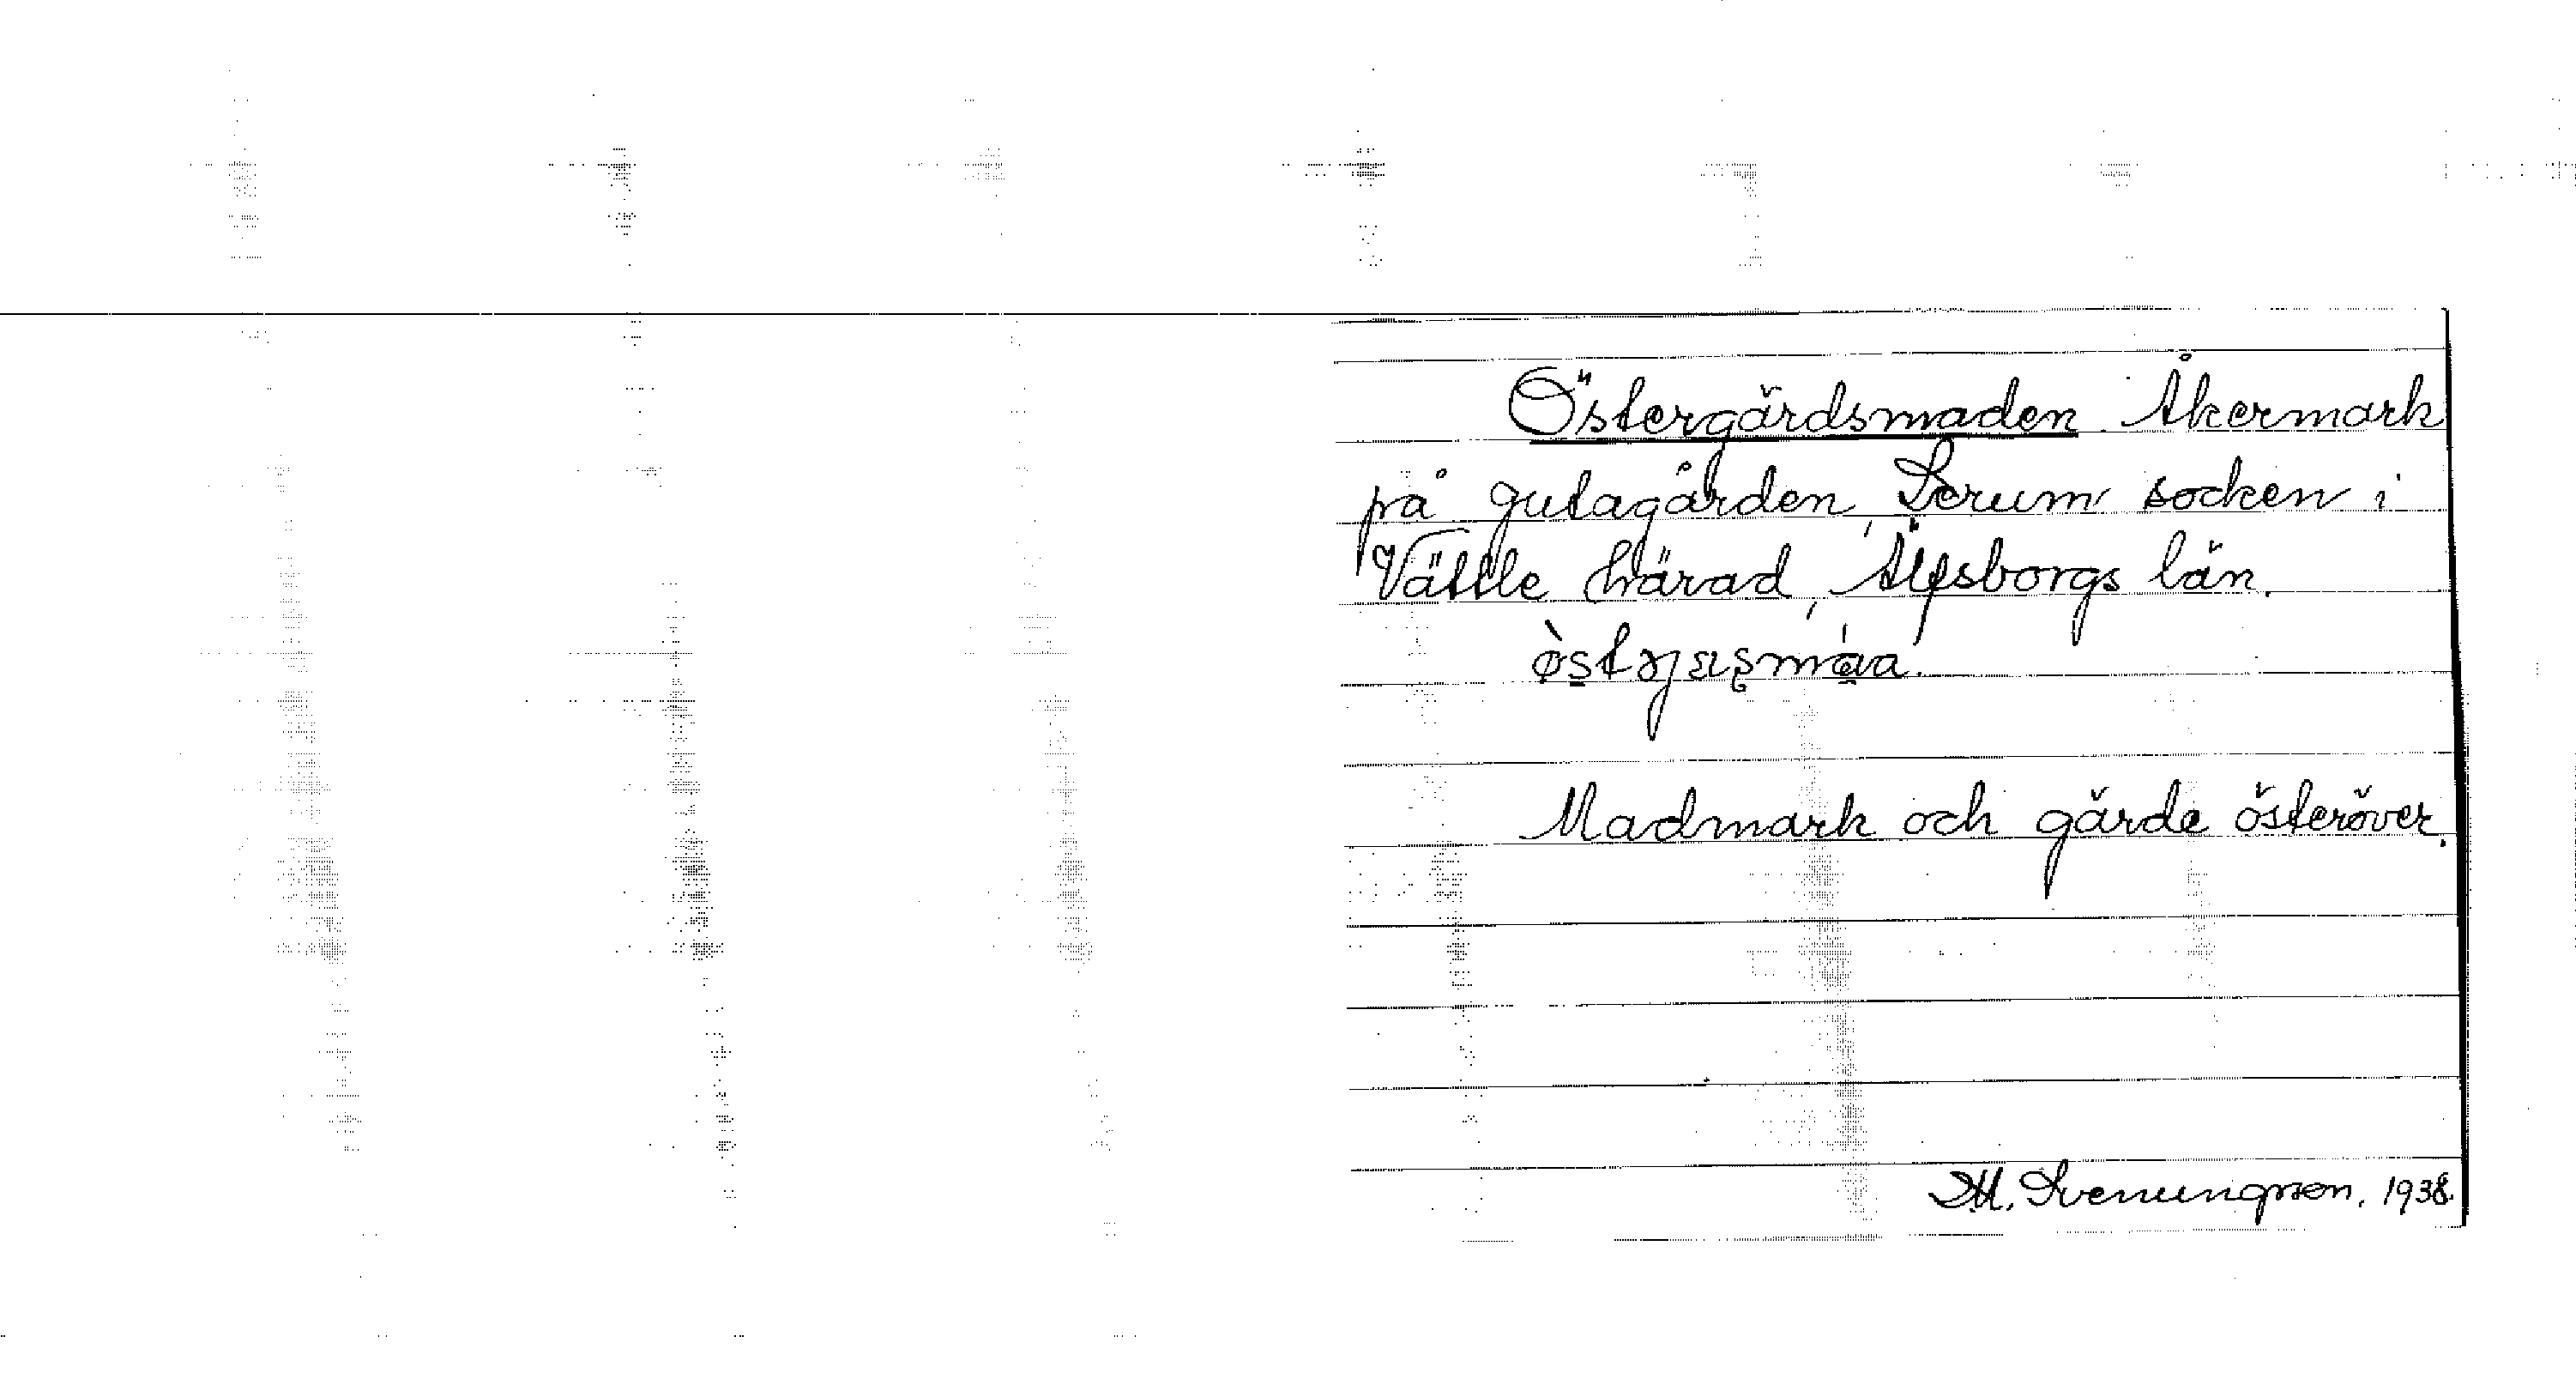 Östergärdsmaden. Åkermark
på Gutagården, Lerum socken i
Vättle härad, Älfsborgs län.
Madmark och gärde österöver.
M. Svenungsson, 1938.